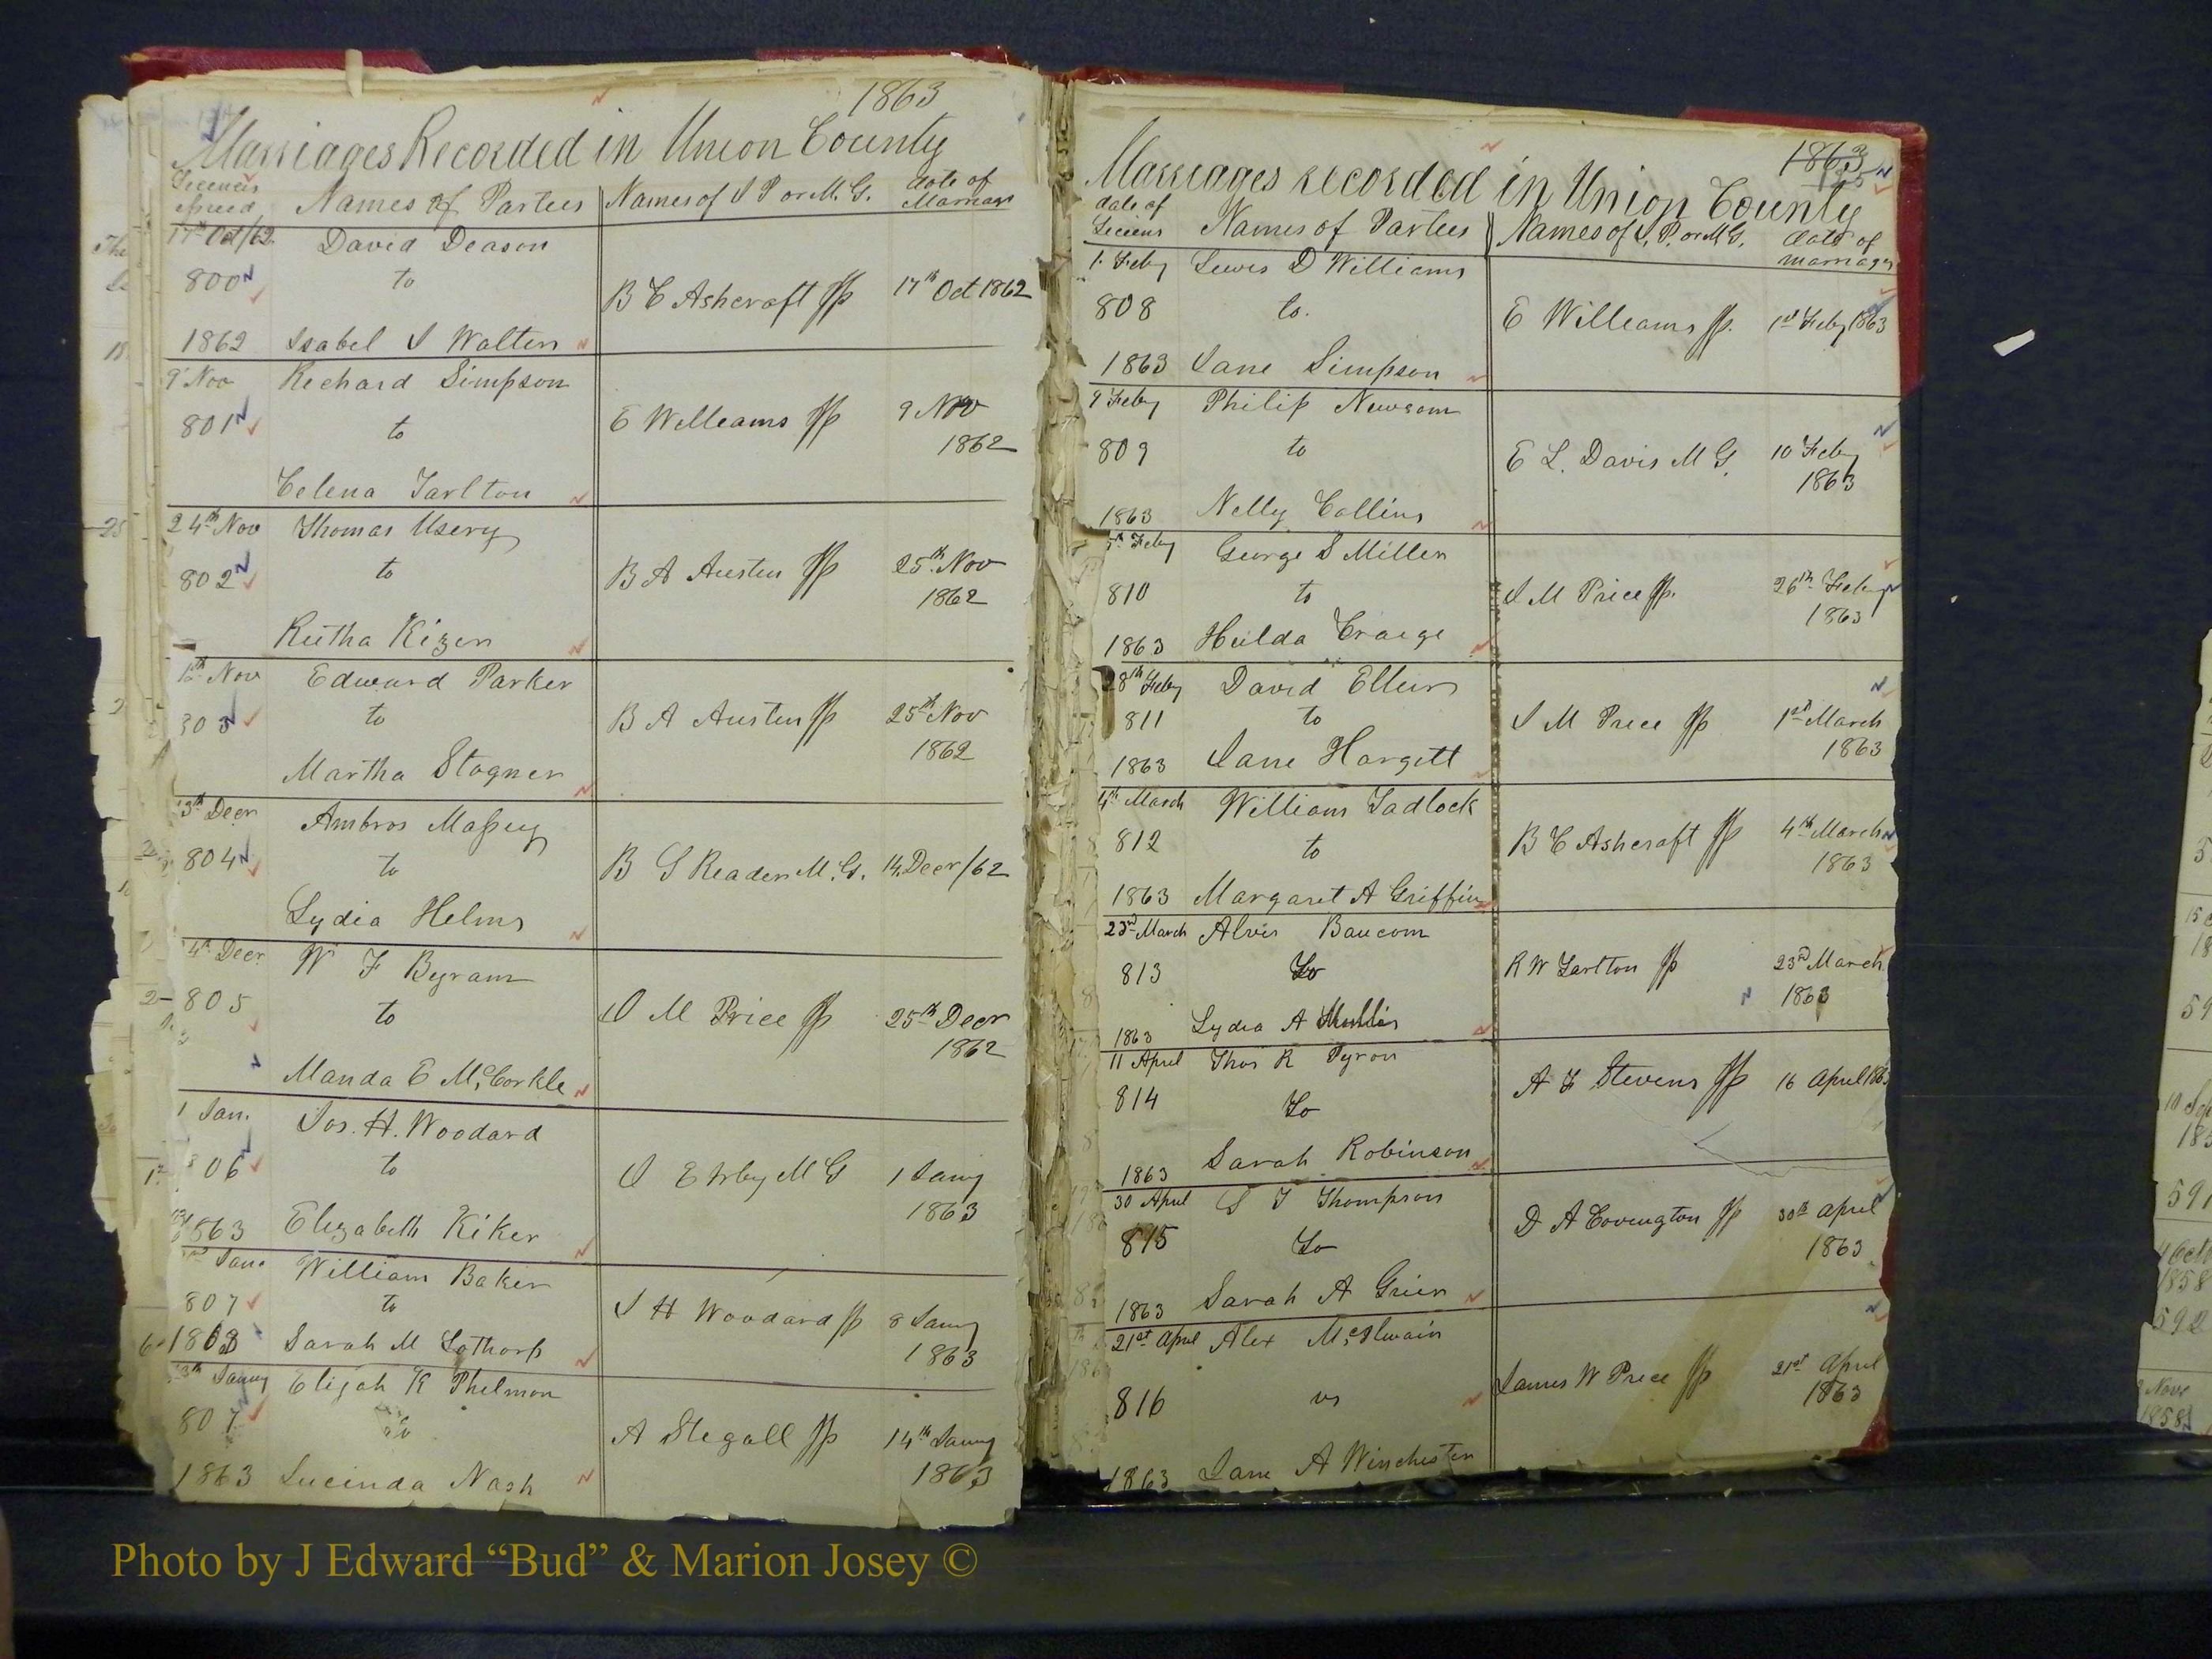 1863
Marriages Recorded in Union County
Licences issued Names of Parties Names of J P or M. G. date of Marriage
17th Oct/62 David Deason
800 to B C Ashcraft JP 17th Oct 1862
1862 Isabel J Walters
9 Nov Richard Simpson
801 to E Williams JP 9 Nov
1862
Celena Tarlton
24th Nov Thomas Usery
802 to B A Austin JP 25th Nov
1862
Rutha Kizer
Nov Edward Parker
803 to B A Austin JP 25th Nov
1862
Martha Stogner
13th Decr Ambros Massey
804 to B G Reader M. G. 14 Decr/62
Lydia Helms
4th Decr W F Byram
805 to J M Price JP 25th Decr
1862
Manda E McCorkle
1 Jan. Jos. H. Woodard
806 to 1 Jany
1863
1863 Elizabeth Kiker
Jan. William Baker
807 to J H Woodard JP 8 Jany
1863
1863 Sarah M Lothorp
13th Jany Elijah K Philmon
807 to A Stegall JP 14th Jany
1863
1863 Lucinda Nash
1863
Marriages recorded in Union County
date of Licens Names of Parties Names of J. P. or M G. date of marriage
1 Feby Lewis D Williams
808 to. E Williams JP. 1st Feby 1863
1863 Jane Simpson
9 Feby Philip Newsom
809 to E L. Davis M G. 10 Feby
1863
1863 Nelly Collins
Feby George S Miller
810 to J M Price JP. 26th Feby
1863
1863 Hulda Craige
28th Feby David Ellen
811 to J M Price JP 1st March
1863
1863 Jane Hargett
4th March William Tadlock
812 to B C Ashcraft JP 4th March
1863
1863 Margaret A Griffin
23rd March Alvis Baucom
813 To R W Tarlton JP 23rd March
1863
1863 Lydia A Mullis
11 April Thos R Pyron
814 To A F Stevens JP 16 April 1863
1863 Sarah Robinson
30 April S T Thompson
815 To D A Covington JP 30th April
1863
1863 Sarah A Grier
21st April Alex McIlwain
816 vs James W Price JP 21st April
1863
1863 Jane A Winchester
Photo by J Edward “Bud” & Marion Josey ©